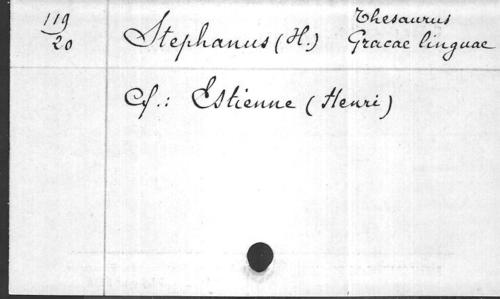 119
20
Stephanus (H.) Thesaurus
Gracae linguae
Cf.: Estienne (Henri)